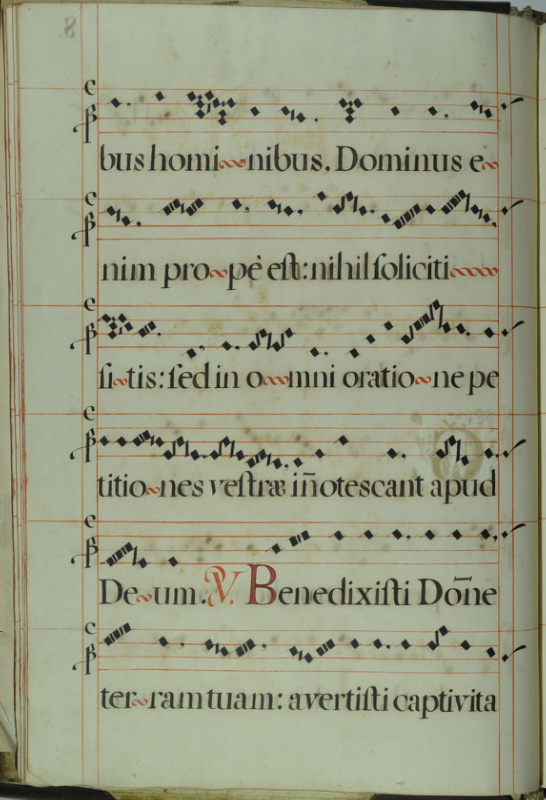 bus homi~nibus. Dominus e~
nim pro~pè est: nihil soliciti~
si~tis: sed in o~mni oratio~ne pe
titio~nes vestræ iñotescant apud
De~um. V. Benedixisti Dōne
ter~ram tuam: avertisti captivita